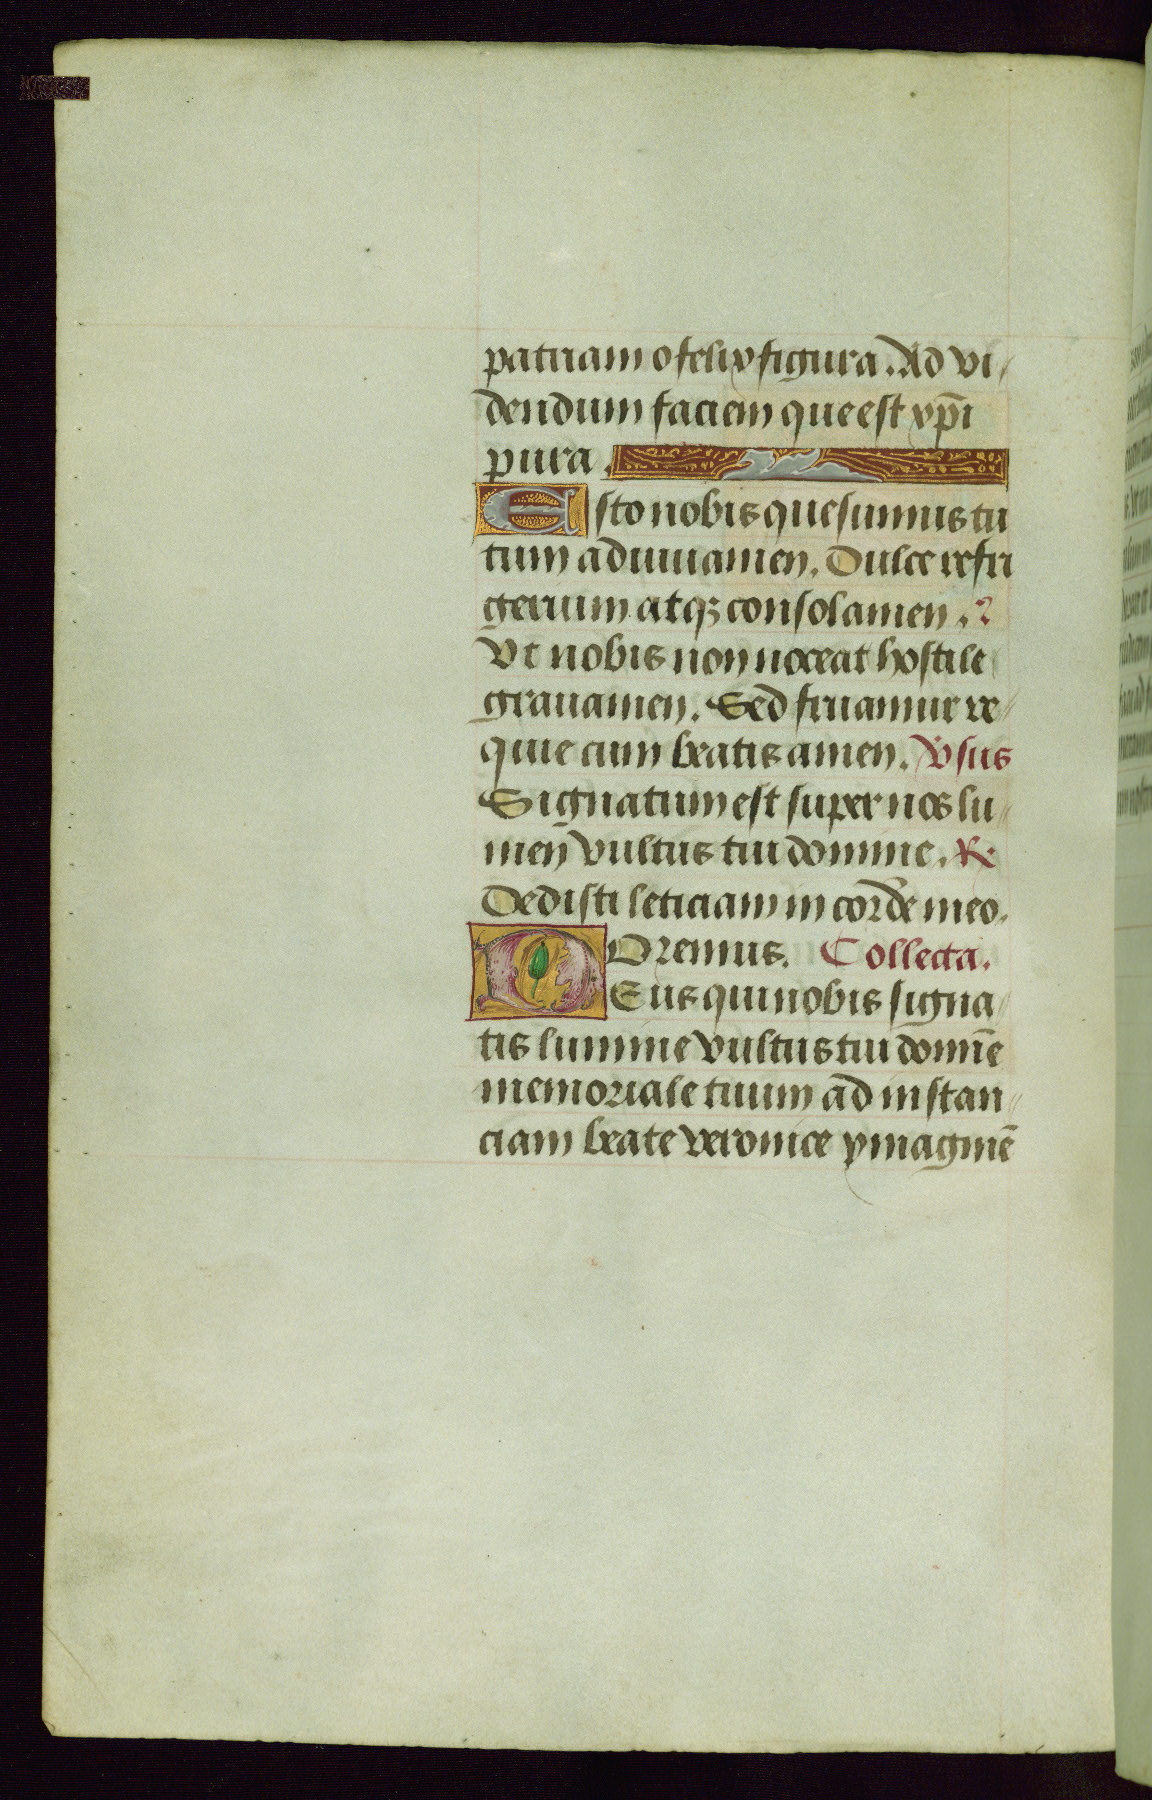 patriam o felix figura. Ad vi-
dendum faciem que est xp̄i
pura.
Esto nobis quesumus tu
tum adiuuamen. Dulce refri
gerium atqꝫ consolamen.
Vt nobis non noceat hostile
grauamen. Sed fruamur re-
quie cum beatis amen. Vsus
Signatum est super nos lu-
men vultus tui domine. R̷
Dedisti leticiam in corde meo.
Oremus. Collecta.
Deus qui nobis signa-
tis lumine vultus tui domīe
memoriale tuum ad instan-
ciam beate veronice ymaginē